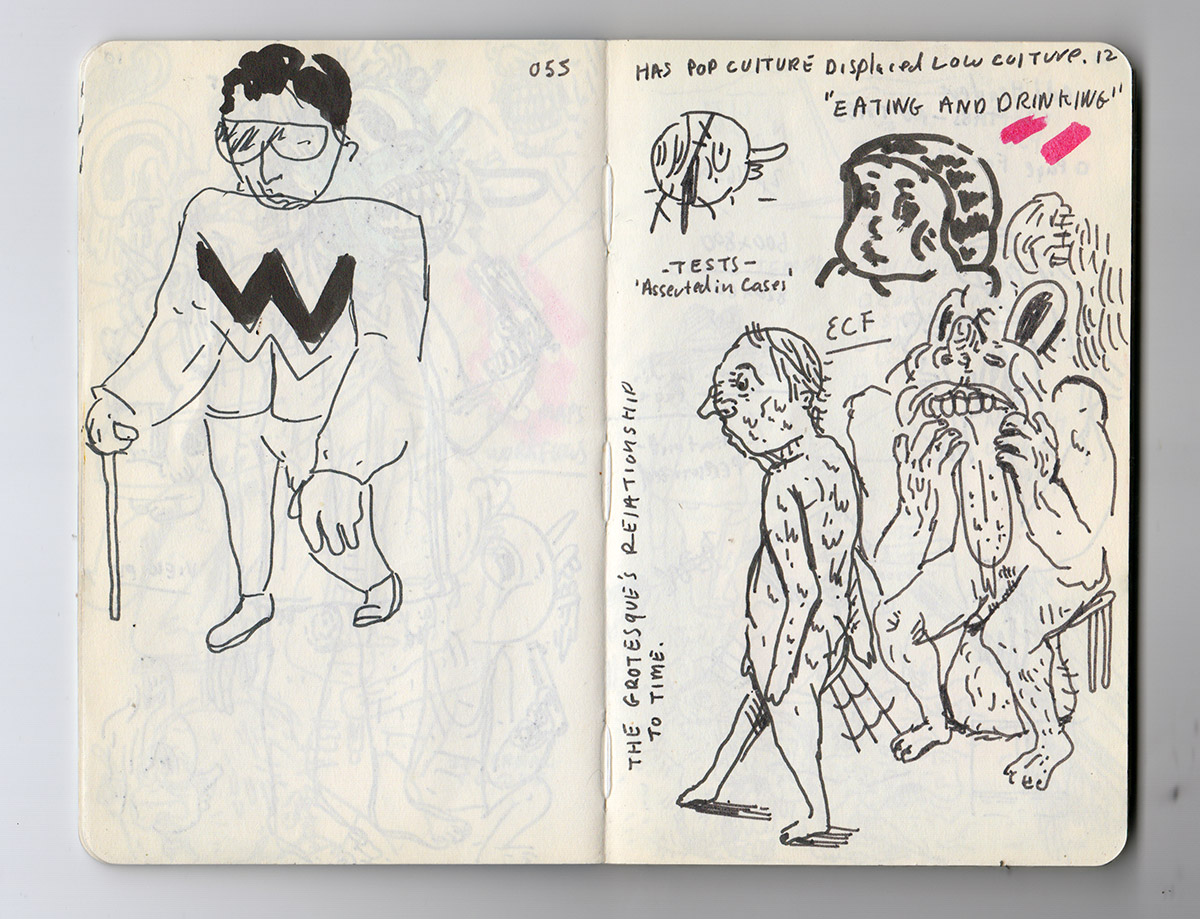 055
HAS POP CULTURE DISplaced LOW CUlTURE. 12
"EATING AND DRINKING"
-TESTS-
'Asserted in Cases'
ECF
THE GROTESQUE'S RELATIONSHIP
TO TIME.
W